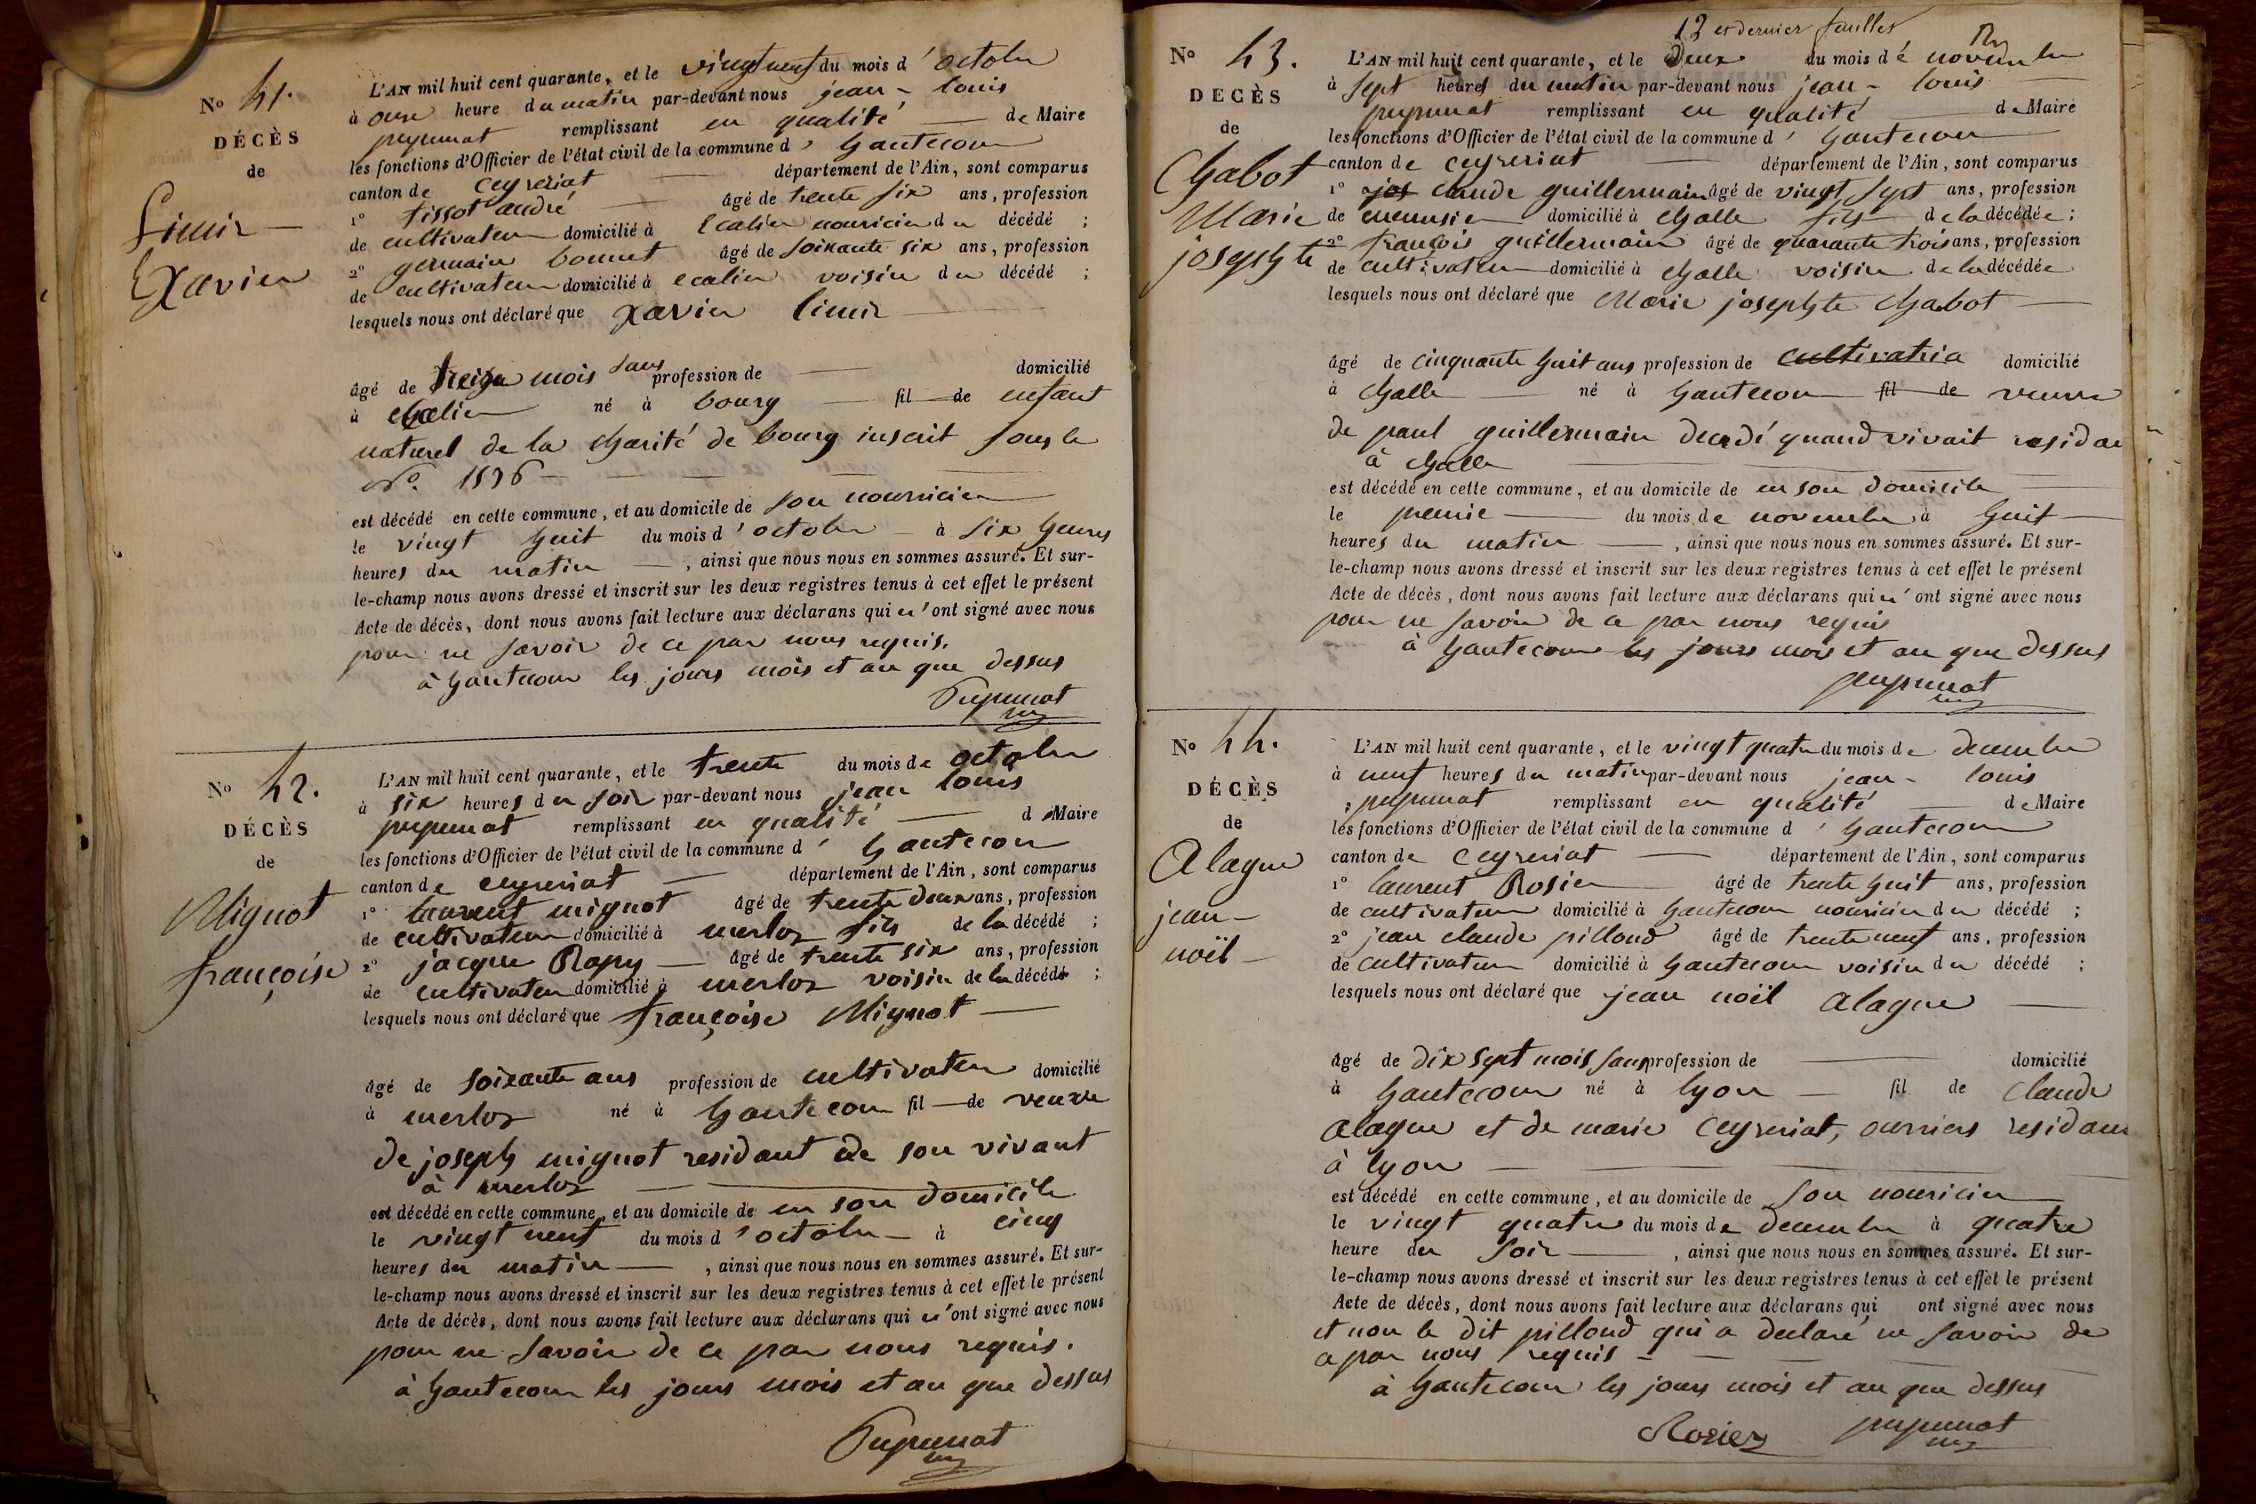 No 41.
DÉCÈS
de
Limir
Xavier
L'AN mil huit cent quarante, et le vingt neuf du mois d'octobre
à onze heure du matin par-devant nous jean-louis
pupunat remplissant en qualité de Maire
les fonctions d'Officier de l'état civil de la commune d'hautecour
canton de ceyzeriat département de l'Ain, sont comparus
1° tissot andré âgé de trente six ans, profession
de cultivateur domicilié à nouricier du décédé ;
2° germain bonnet âgé de soixante six ans, profession
de cultivateur domicilié à voisin du décédé ;
lesquels nous ont déclaré que Xavier limir
âgé de treize mois sans profession de domicilié
à né à bourg fil de enfant
naturel de la charité de bourg inscrit sous le
No. 1536
est décédé en cette commune, et au domicile de son nourricier
le vingt huit du mois d'octobre à six heures
heures du matin , ainsi que nous nous en sommes assuré. Et sur-
le-champ nous avons dressé et inscrit sur les deux registres tenus à cet effet le présent
Acte de décès, dont nous avons fait lecture aux déclarans qui n'ont signé avec nous
pour ne savoir de ce par nous requis.
à hautecour les jours mois et an que dessus
Pupunat
No 42.
DÉCÈS
de
Mignot
françoise
L'AN mil huit cent quarante, et le trente du mois de octobre
à six heures du soir par-devant nous jean louis
pupunat remplissant en qualité d Maire
les fonctions d'Officier de l'état civil de la commune d'hautecour
canton de ceyzeriat département de l'Ain, sont comparus
1° laurent mignot âgé de trente deux ans, profession
de cultivateur domicilié à merloz fils de la décédé ;
2° jacque Rapy âgé de trente six ans, profession
de cultivateur domicilié à merloz voisin de la décédé ;
lesquels nous ont déclaré que françoise Mignot
âgé de soixante ans profession de cultivateur domicilié
à merloz né à hautecour fil de veuve
de joseph mignot residant de son vivant
à merloz
est décédé en cette commune, et au domicile de en son domicile
le vingt neuf du mois d'octobre à cinq
heures du matin , ainsi que nous nous en sommes assuré. Et sur-
le-champ nous avons dressé et inscrit sur les deux registres tenus à cet effet le présent
Acte de décès, dont nous avons fait lecture aux déclarans qui n'ont signé avec nous
pour ne savoir de ce par nous requis.
à hautecour les jours mois et an que dessus
Pupunat
12 et dernier feuillet
No 43.
DECÈS
de
Chabot
Marie
josephte
L'AN mil huit cent quarante, et le deux du mois de novembre
à sept heures du matin par-devant nous jean-louis
pupunat remplissant en qualité de Maire
les fonctions d'Officier de l'état civil de la commune d'hautecour
canton de ceyzeriat département de l'Ain, sont comparus
1° claude guillermain âgé de vingt sept ans, profession
de menuisier domicilié à challe fils de la décédée ;
2° françois guillermain âgé de quarante trois ans, profession
de cultivateur domicilié à challe voisin de la décédée
lesquels nous ont déclaré que Marie josephte chabot
âgé de cinquante huit ans profession de cultivatrice domicilié
à challe né à hautecour fil de veuve
de paul guillermain decedé quand vivait residant
à challe
est décédé en cette commune, et au domicile de en son domicile
le premie du mois de novembre à huit
heures du matin , ainsi que nous nous en sommes assuré. Et sur-
le-champ nous avons dressé et inscrit sur les deux registres tenus à cet effet le présent
Acte de décès, dont nous avons fait lecture aux déclarans qui n'ont signé avec nous
pour ne savoir de ce par nous requis
à hautecour les jours mois et an que dessus
pupunat
No 44.
DÉCÈS
de
Alague
jean-
noël
L'AN mil huit cent quarante, et le vingt quatre du mois de decembre
à neuf heures du matin par-devant nous jean-louis
pupunat remplissant en qualité de Maire
les fonctions d'Officier de l'état civil de la commune d'hautecour
canton de ceyzeriat département de l'Ain, sont comparus
1° laurent Rosier âgé de trente huit ans, profession
de cultivateur domicilié à hautecour nouricier du décédé ;
2° jean claude pilloud âgé de trente neuf ans, profession
de cultivateur domicilié à hautecour voisin du décédé ;
lesquels nous ont déclaré que jean noël alague
âgé de dix sept mois sans profession de domicilié
à hautecour né à lyon fil de claude
alague et de marie ceyzeriat, ouvriers residant
à lyon
est décédé en cette commune, et au domicile de son nouricier
le vingt quatre du mois de decembre à quatre
heure du soir , ainsi que nous nous en sommes assuré. Et sur-
le-champ nous avons dressé et inscrit sur les deux registres tenus à cet effet le présent
Acte de décès, dont nous avons fait lecture aux déclarans qui ont signé avec nous
et non le dit pilloud qui a declaré ne savoir de
ce par nous requis
à hautecour les jours mois et an que dessus
Rosier pupunat